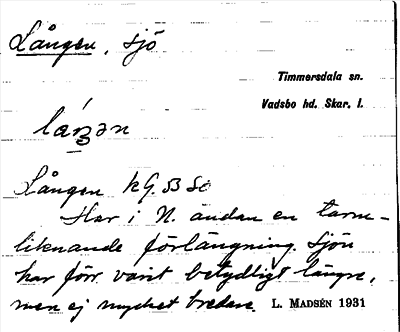 Lången, sjö
Timmersdala sn.
Vadsbo hd. Skar. l.
Lången
Har i N. ändan en tarm-
liknande förlängning. Sjön
har förr varit betydligt längre,
men ej mycket bredare. L. MADSÉN 1931